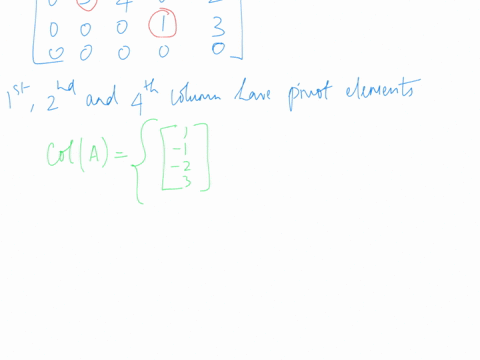 0 0 0 1 3
0 0 0 0 0
1st, 2nd and 4th column have pivot elements
Col(A) = { [
1
-1
-2
3
]